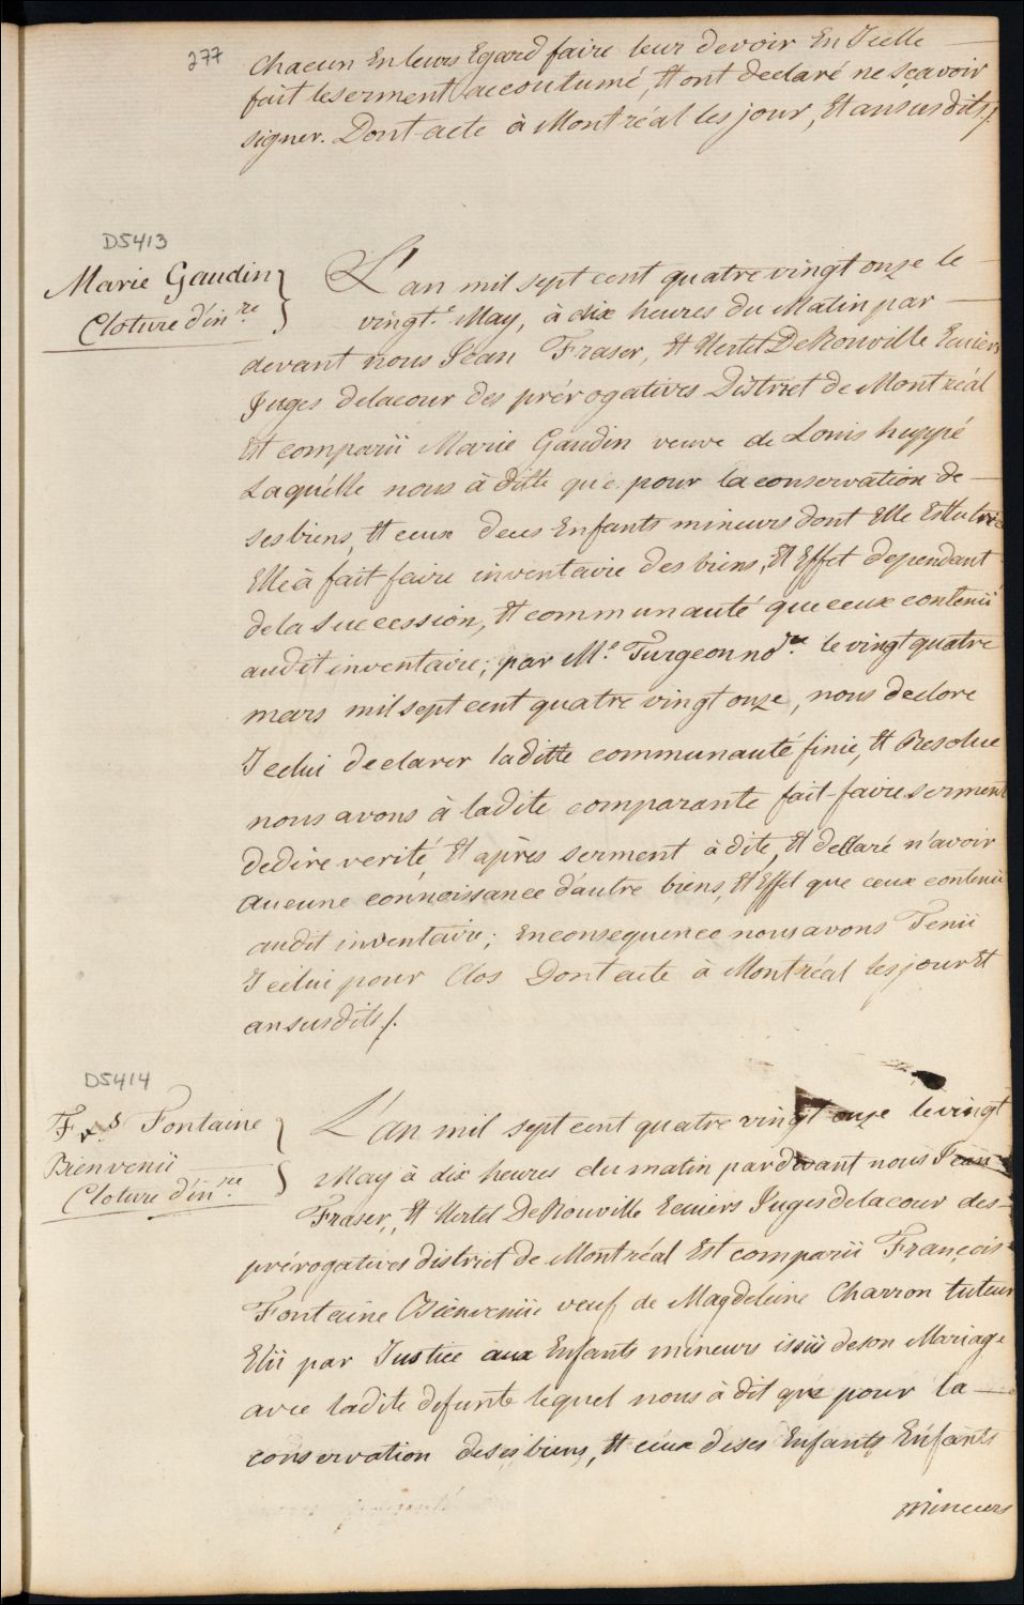 277
Chacun En leurs Egard faire leur devoir En Icelle
fait le serment accoutumé, Et ont declaré ne sçavoir
signer. Dont acte à Montréal les jour, Et an susdits /.
D5413
Marie Gaudin
Cloture d'inre
L'an mil sept cent quatre vingt onze le
vingt.e May, à dix heures du Matin par
devant nous Jean Fraser, Et Hertel DeRouville Ecuiers
Juges delacour des prérogatives District de Montréal
Est comparü Marie Gaudin veuve de Louis huppé
Laquélle nous à ditte que pour la conservation de
ses biens, Et ceux deses Enfants mineurs dont Elle Est tutrice
Elle à fait faire inventaire des biens, Et Effet dependant
dela Succession, Et communauté que ceux contenü
audit inventaire; par Me. Turgeon nore. le vingt quatre
mars mil sept cent quatre vingt onze, nous declore
Icelui declarer laditte communauté finie, Et Resolue
nous avons à ladite comparante fait faire serment
dedire verité, Et après serment à dite, Et declaré n'avoir
aucune connoissance d'autre biens, Et Effet que ceux contenü
audit inventaire; En consequence nous avons Tenü
Icelui pour Clos Dont acte à Montréal les jour Et
an susdits /.
D5414
Fs Fontaine
Bienvenü
Cloture d'inre
L'an mil sept cent quatre vingt onze le vingt
May à dix heures du matin pardevant nous Jean
Fraser, Et Hertel DeRouville Ecuiers Juges delacour des
prérogatives district de Montréal Est comparü François
Fontaine Bienvenüe veuf de Magdeleine Charron tuteur
Elü par Justice aux Enfants mineurs issüs deson Mariage
avec ladite defunte lequel nous à dit que pour la
conservation deses biens, Et ceux deses Enfants Enfants
mineurs